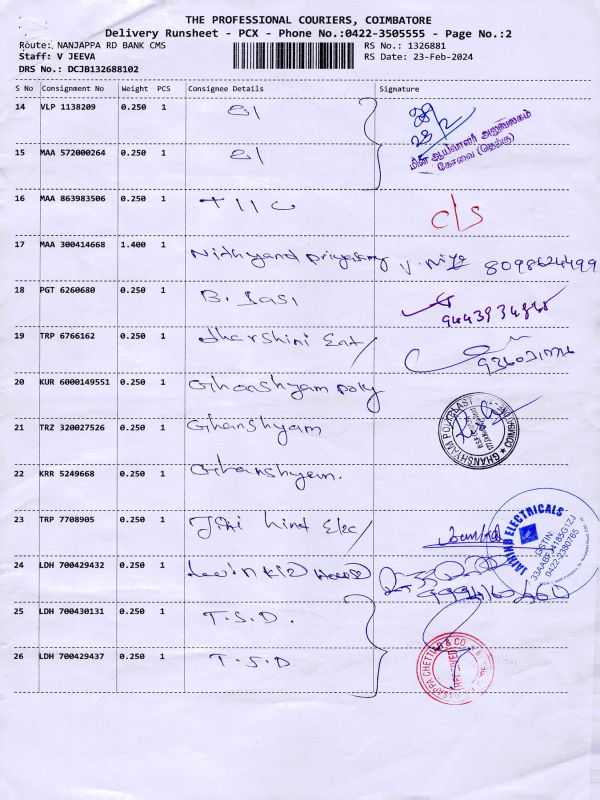 THE PROFESSIONAL COURIERS, COIMBATORE
Delivery Runsheet - PCX - Phone No.:0422-3505555 - Page No.:2
Route: NANJAPPA RD BANK CMS RS No.: 1326881
Staff: V JEEVA RS Date: 23-Feb-2024
DRS No.: DCJB132688102
S No Consignment No Weight PCS Consignee Details Signature
14 VLP 1138209 0.250 1
15 MAA 572000264 0.250 1
மின் ஆய்வாளர் அலுவலகம்
கோவை (தெற்கு)
16 MAA 863983506 0.250 1 TIIC c/s
17 MAA 300414668 1.400 1 8098624499
18 PGT 6260680 0.250 1 B. Sasi
19 TRP 6766162 0.250 1 dharshini Ent/
20 KUR 6000149551 0.250 1 Ghanshyam poly
21 TRZ 320027526 0.250 1 Ghanshyam
GHANSHYAM POLYPLAST COIMBATORE
22 KRR 5249668 0.250 1 Ghanshyam.
23 TRP 7708905 0.250 1 Jai hind Elec/
JAIHIND ELECTRICALS
GSTIN:
0422-2380765
24 LDH 700429432 0.250 1
25 LDH 700430131 0.250 1 T.S.D.
26 LDH 700429437 0.250 1 T.S.D